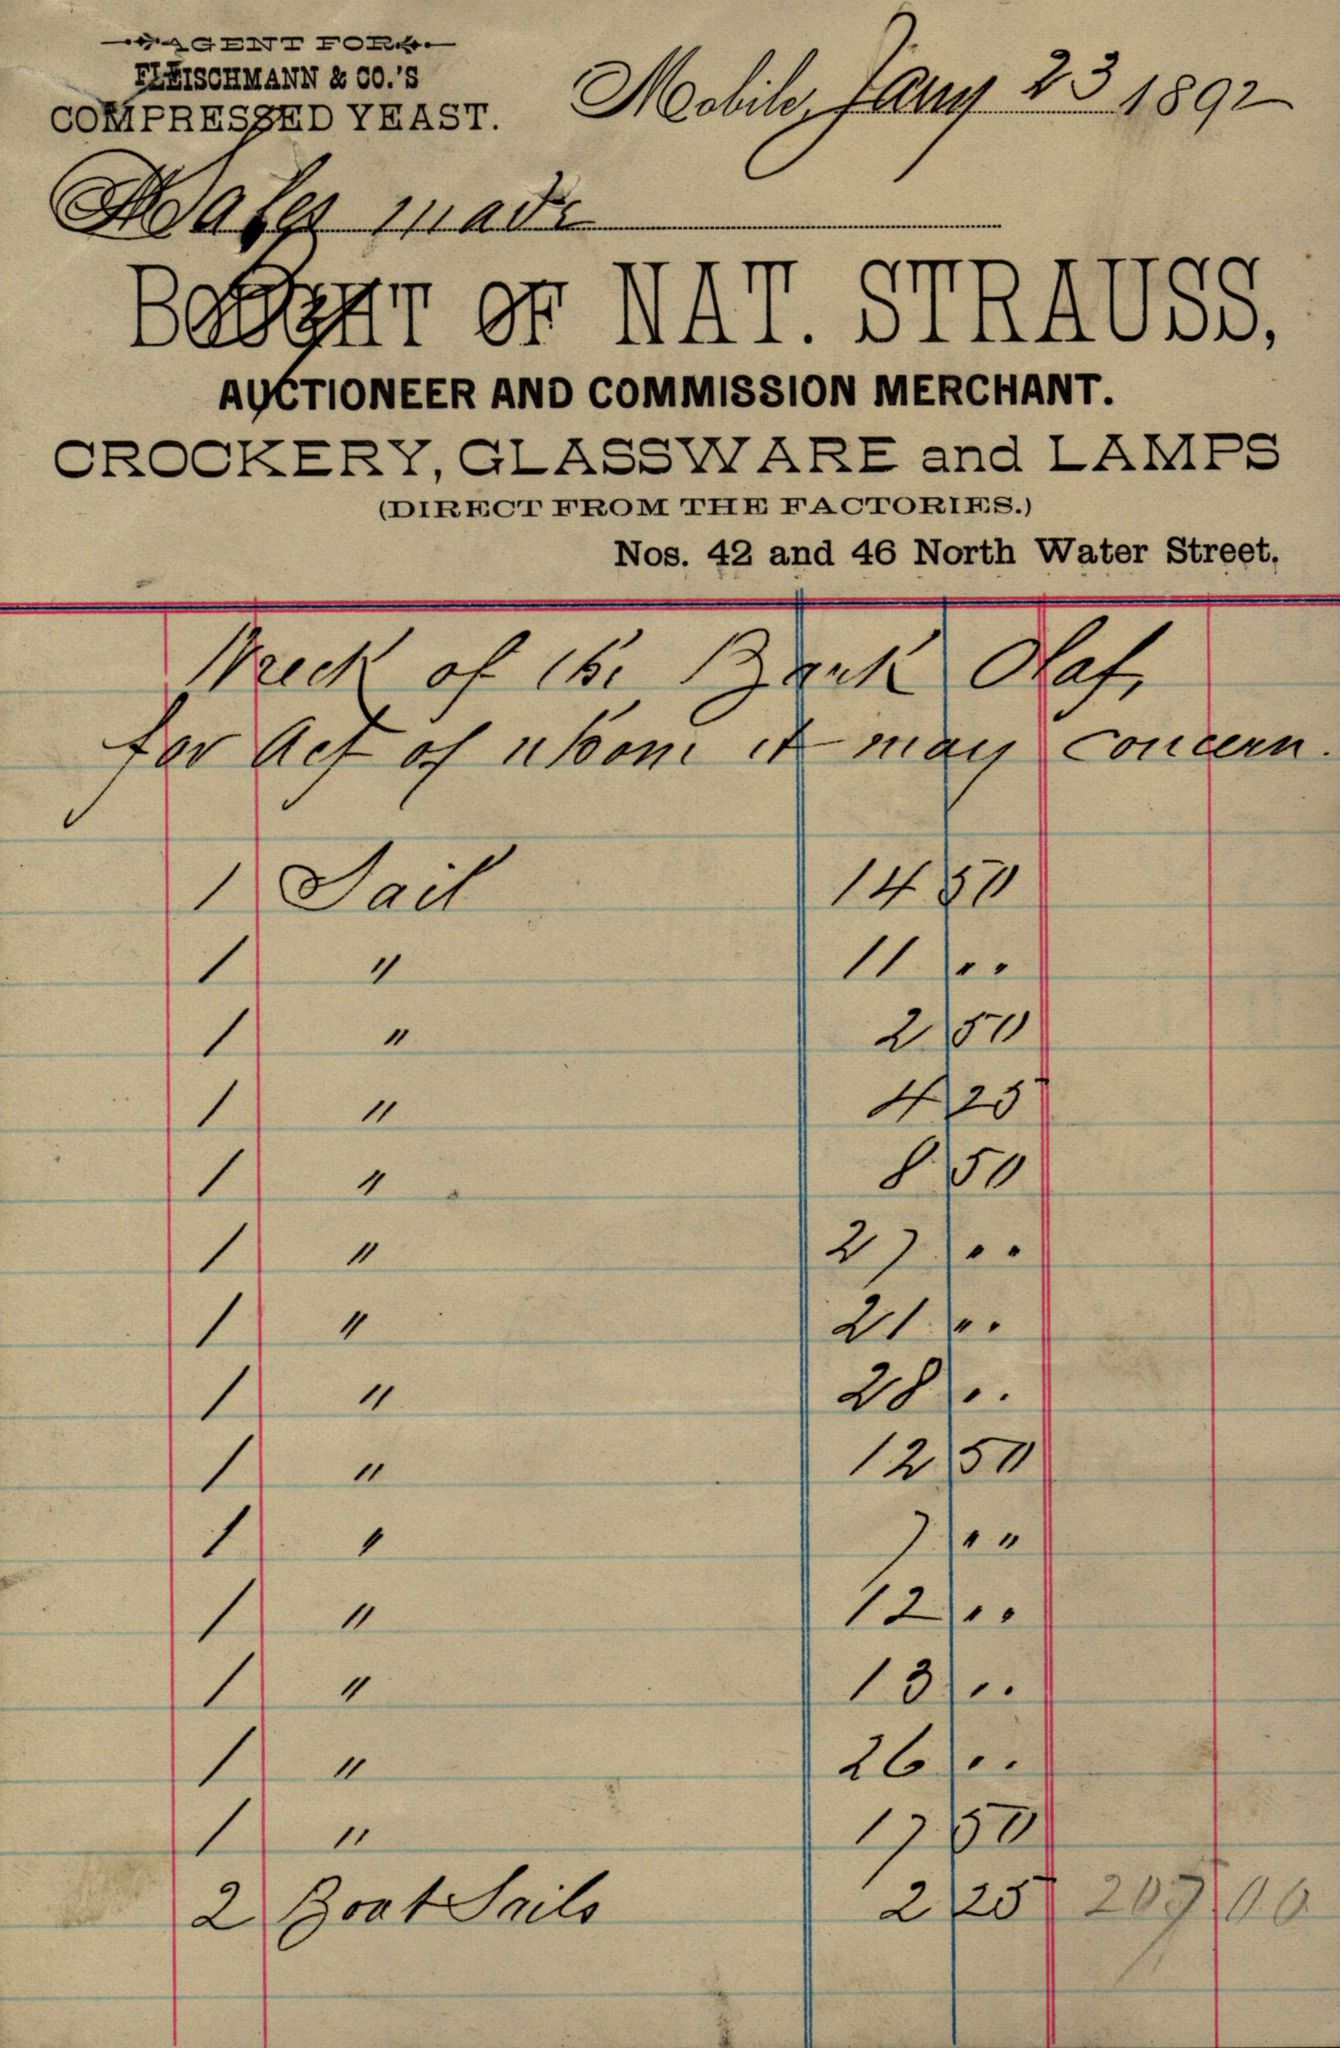 AGENT FOR
FLEISCHMANN & CO.'S
COMPRESSED YEAST.
Mobile, Jany 23 1892
Sales made
BOUGHT OF NAT. STRAUSS,
AUCTIONEER AND COMMISSION MERCHANT.
CROCKERY, GLASSWARE and LAMPS
(DIRECT FROM THE FACTORIES.)
Nos. 42 and 46 North Water Street.
Wreck of the Bark Olaf,
for act of whom it may concern.
1 Sail 14 50
1 " 11 ..
1 " 2 50
1 " 4 25
1 " 8 50
1 " 27 ..
1 " 21 ..
1 " 28 ..
1 " 12 50
1 " 7 ..
1 " 12 ..
1 " 13 ..
1 " 26 ..
1 " 17 50
2 Boat Sails 2 25 207 00